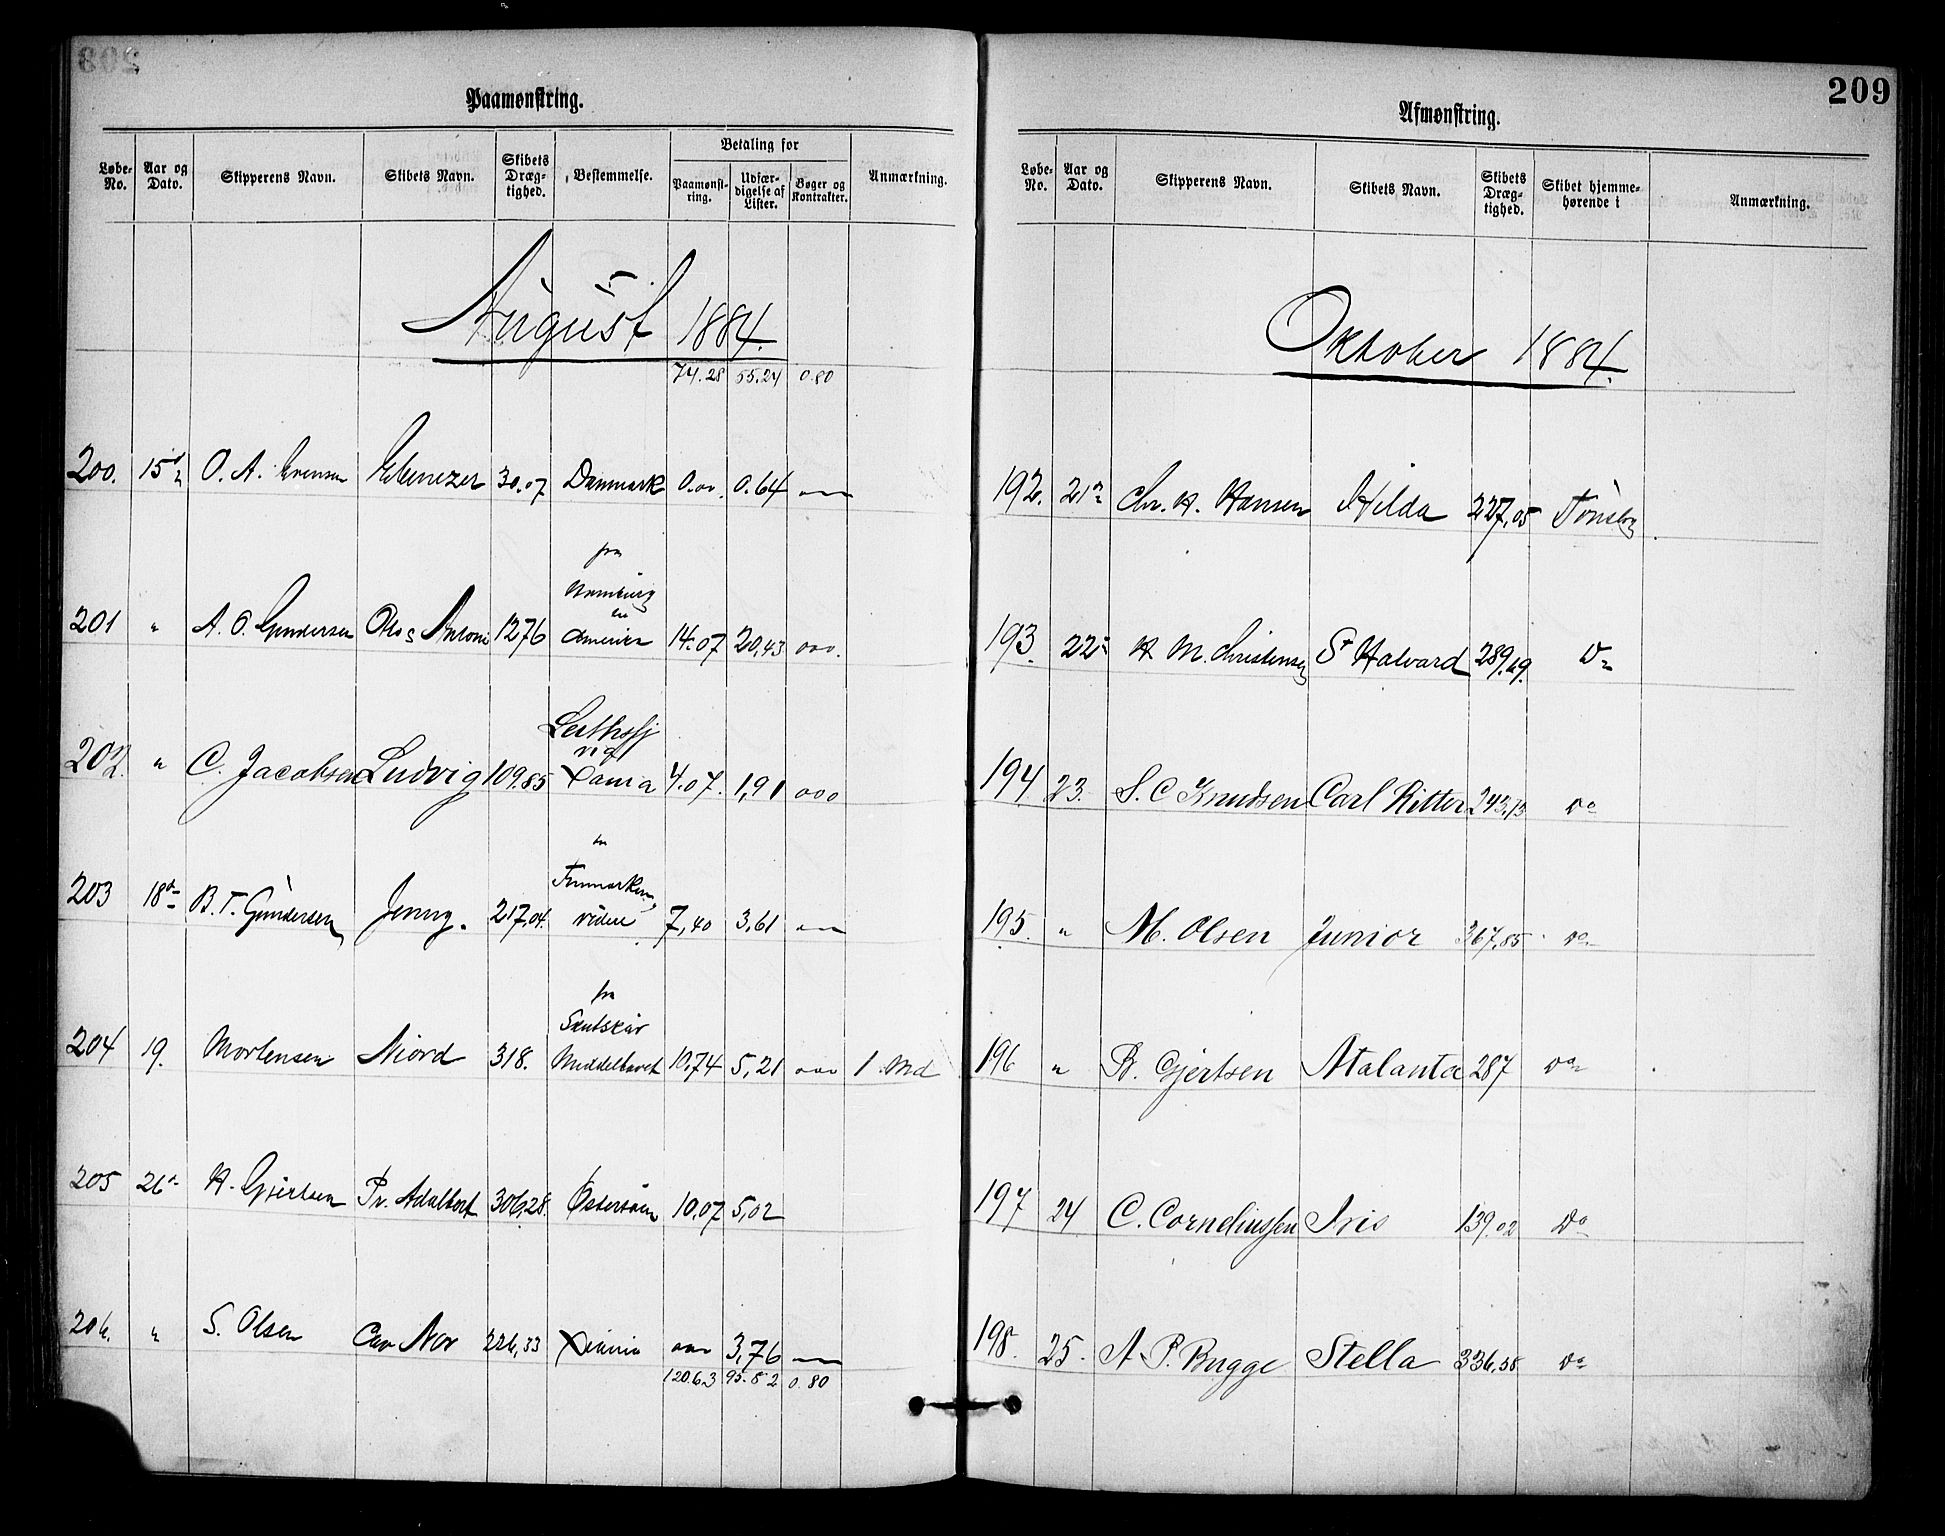 209
Paamønstring.
Løbe-No. Aar og Dato. Skipperens Navn. Skibets Navn. Skibets Dræg-tighed. Bestemmelse. Betaling for Paamønst-ring. Udfær-digelse af Lister. Bøger og Kontrakter. Anmærkning.
August 1884.
74.28 55.24 0.80
200. 15 O. A. Evensen Ebenezer 30.07 Danmark 0.00. 0.64
fra
Hamburg
201 " A. O. Gundersen Antoni 1276 14.07 20,43 000.
202. " C. Jacobsen Ludvig 109.85 Xania 4.07. 1,91 000
Finmarken
203 18 B. T. Gundersen Jenny. 217,04. videre 7,40 3,61
fra
204 19. Mortensen Niord 318. Middelhavet 10,74 5,21 000 1 Md
205 26 H. Gjertsen Pr. Adalbert 306,28. Østersøen 10.07 5,02
206. " S. Olsen Nor 226,33 Xiania 3,76
120.63 95.82 0.80
Afmønstring.
Løbe-No. Aar og Dato. Skipperens Navn. Skibets Navn. Skibets Dræg-tighed. Skibet hjemme-hørende i Anmærkning.
Oktober 1884.
192. 21 Chr. H. Hansen Hilda 227,05 Tønsbg
193. 22 H M. Christensen St Halvard 289,69. Do
194 23. S. C Knudsen Carl Ritter 243,13 Do
195. " M. Olsen Junior 367,85 Do
196 " B. Gjertsen Atalanta 287 Do
197 24 C. Corneliussen Iris 139.02 Do
198. 25. A. P. Bugge Stella 336,58 Do